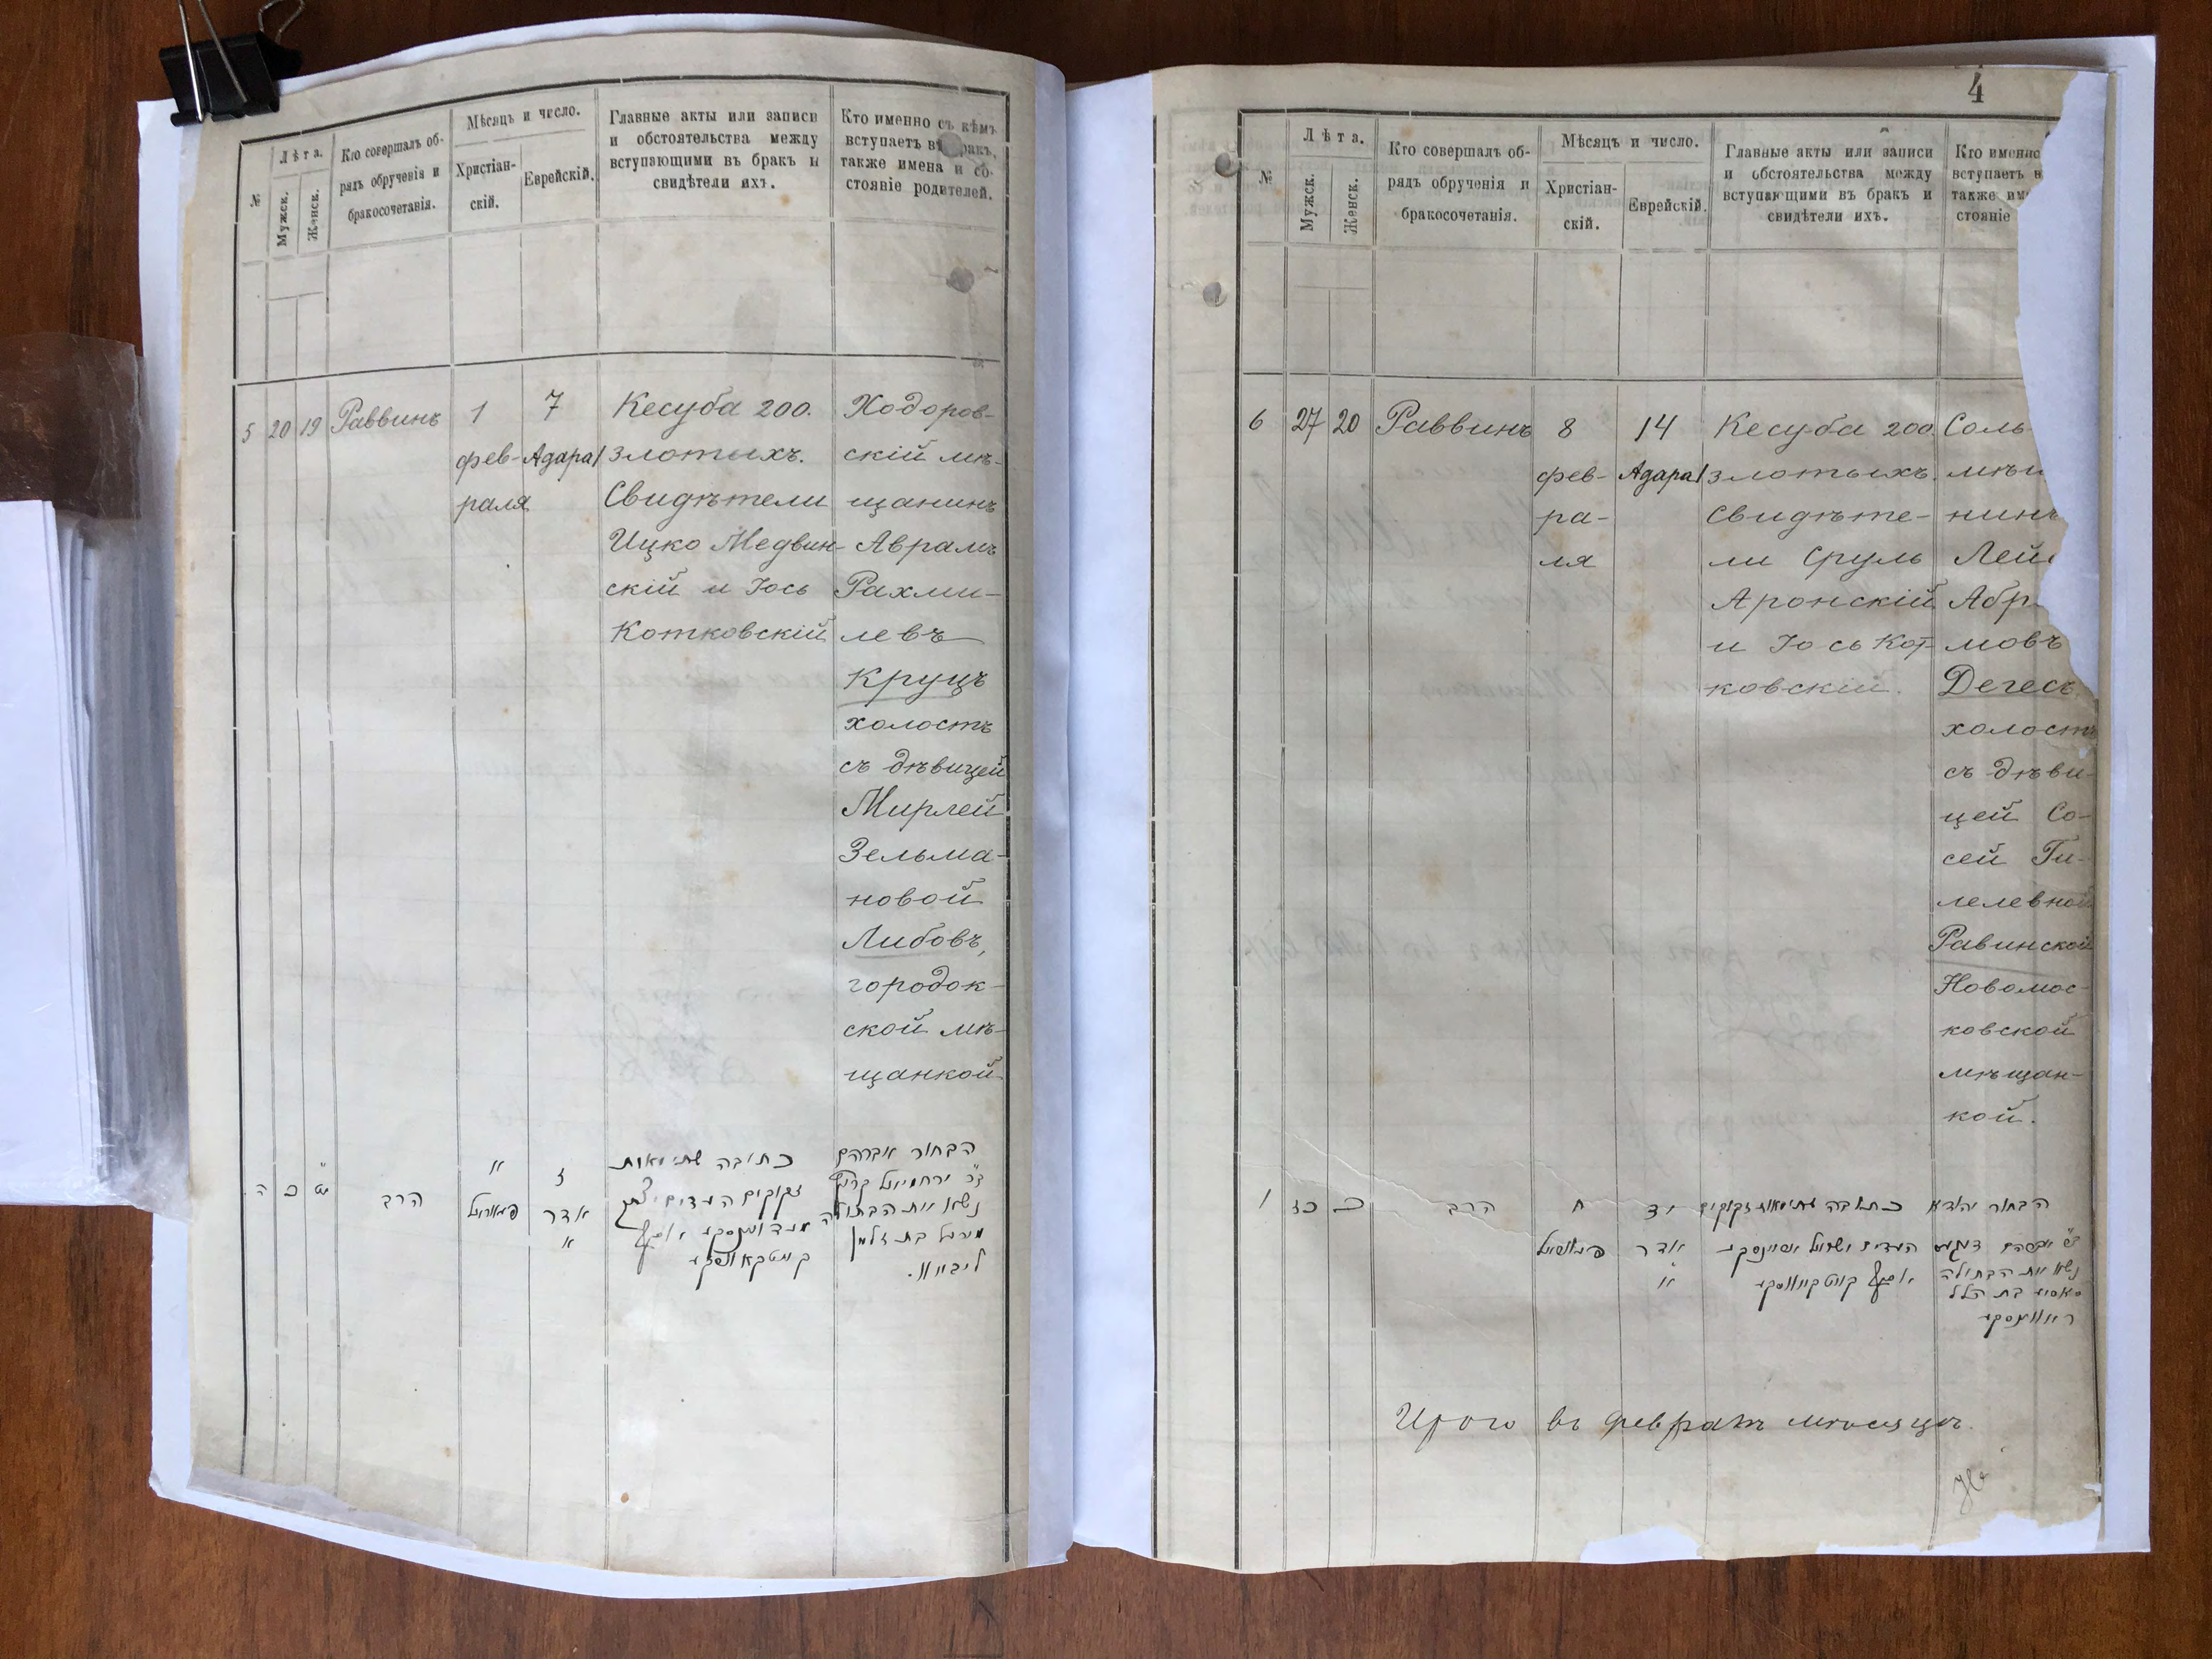 №
Лѣта.
Мужск.
Женск.
Кто совершалъ об-
рядъ обрученія и
бракосочетанія.
Мѣсяцъ и число.
Христіан-
скій.
Еврейскій.
Главные акты или записи
и обстоятельства между
вступающими въ бракъ и
свидѣтели ихъ.
Кто именно съ кѣмъ
вступаетъ въ бракъ,
также имена и со-
стояніе родителей.
5
20
19
Раввинъ
1
фев-
раля
7
Адара 1
Кесуба 200.
злотыхъ.
Свидѣтели
Ицко Медвин-
скій и Іось
Котковскій
Ходоров-
скій мѣ-
щанинъ
Аврамъ
Рахми-
левъ
Круцъ
холостъ
съ дѣвицей
Мирлей
Зельма-
новой
Либовъ,
городок-
ской мѣ-
щанкой
ה
כ
יט
הרב
א
פעוראל
ז
אדר
א
כתובה שתי מאות
זקוקים העדים יצחק
קאטקאווסקי
הבחור אברהם
ב״ר ירחמיאל קרוץ
נשא את הבתולה
מירל בת זלמן
ליבאוו.
4
№
Лѣта.
Мужск.
Женск.
Кто совершалъ об-
рядъ обрученія и
бракосочетанія.
Мѣсяцъ и число.
Христіан-
скій.
Еврейскій.
Главные акты или записи
и обстоятельства между
вступающими въ бракъ и
свидѣтели ихъ.
Кто именно
вступаетъ в
также им
стояніе
6
27
20
Раввинъ
8
фев-
ра-
ля
14
Адара 1
Кесуба 200
злотыхъ.
Свидѣте-
ли Сруль
Аронскій
и Іось Кот-
ковскій.
Соль
мѣщ
нинъ
Лей
Абр
мовъ
Дегесъ
холостъ
съ дѣви-
цей Со-
сей Ги-
лелевной
Равинской
Новомос-
ковской
мѣщан-
кой.
ו
כז
כ
הרב
ח
יד
אדר
א
כתובה שתי מאות זקוקים
העדים ישראל
יוסף
הבחור
נשא את הבתולה
בת הלל
ראווינסקי
Итого въ февралѣ мѣсяцѣ.